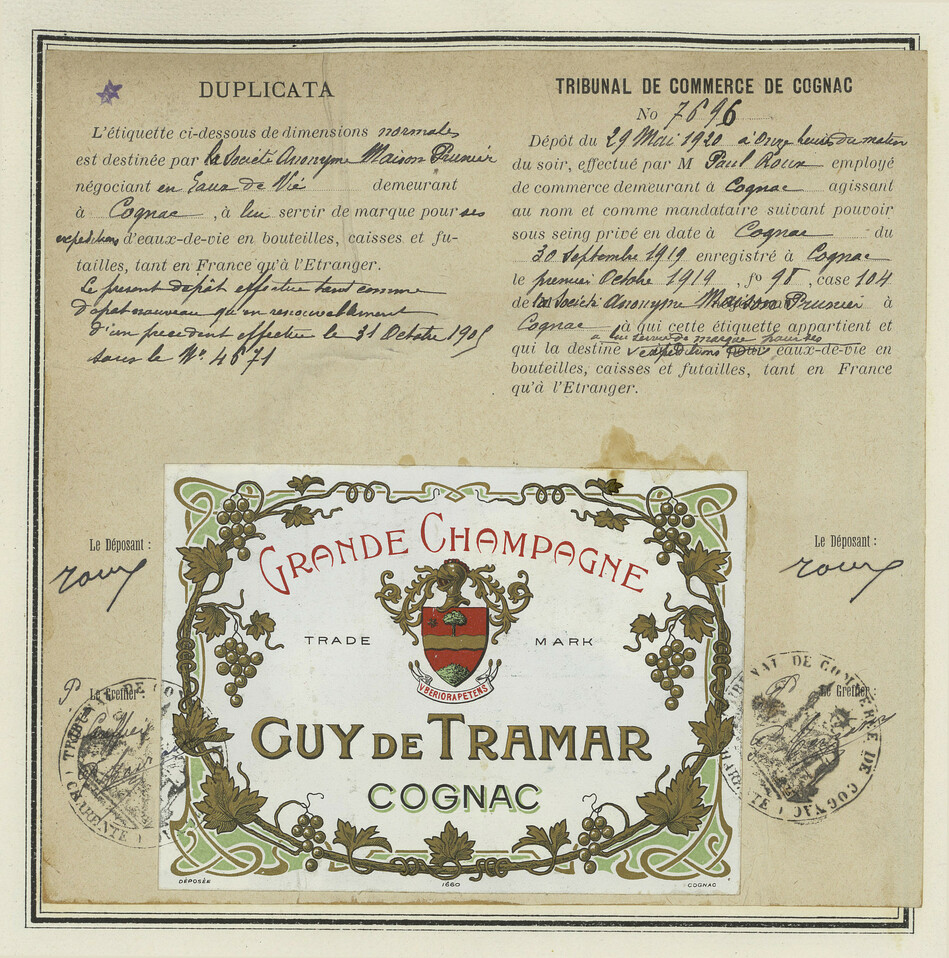 DUPLICATA
L'étiquette ci-dessous de dimensions normales
est destinée par la Société Anonyme Maison Prunier
négociant en Eaux de Vie demeurant
à Cognac, à lui servir de marque pour ses
expeditions d'eaux-de-vie en bouteilles, caisses et fu-
tailles, tant en France qu'à l'Etranger.
Le present dépôt effectué tant comme
dépot nouveau qu'en renouvellement
d'un precedent effectué le 31 Octobre 1905
sous le No. 4671
TRIBUNAL DE COMMERCE DE COGNAC
No 7696
Dépôt du 29 Mai 1920 à Onze heures du matin
du soir, effectué par M Paul Roux employé
de commerce demeurant à Cognac agissant
au nom et comme mandataire suivant pouvoir
sous seing privé en date à Cognac du
30 Septembre 1919 enregistré à Cognac
le premier Octobre 1919, fo 98, case 104
de la Société Anonyme Maison Prunier à
Cognac à qui cette étiquette appartient et
à lui servir de marque pour ses
qui la destine expeditions eaux-de-vie en
bouteilles, caisses et futailles, tant en France
qu'à l'Etranger.
Le Déposant :
Roux
Le Greffier :
TRIBUNAL DE CO
CHARENTE
GRANDE CHAMPAGNE
TRADE MARK
VBERIORAPETENS
GUY DE TRAMAR
COGNAC
DÉPOSÉE
1660
COGNAC
Le Déposant :
Roux
Le Greffier :
TRIBUNAL DE COMMERCE DE COGNAC
CHARENTE